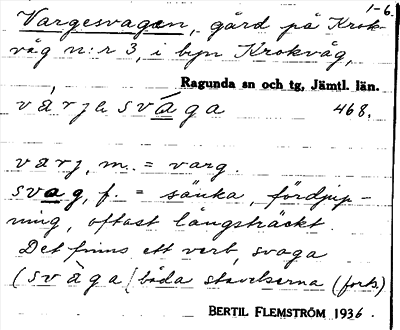 1-6.
Vargesvagen, gård på Krok-
våg n:r 3, i byn Krokvåg,
Ragunda sn och tg, Jämtl. län.
várjesvàga 468.
varj, m. = varg.
svag, f. = sänka, fördjup-
ning, oftast långsträckt.
Det finns ett verb, svaga
(svàga [båda stavelserna (forts)
BERTIL FLEMSTRÖM 1936.